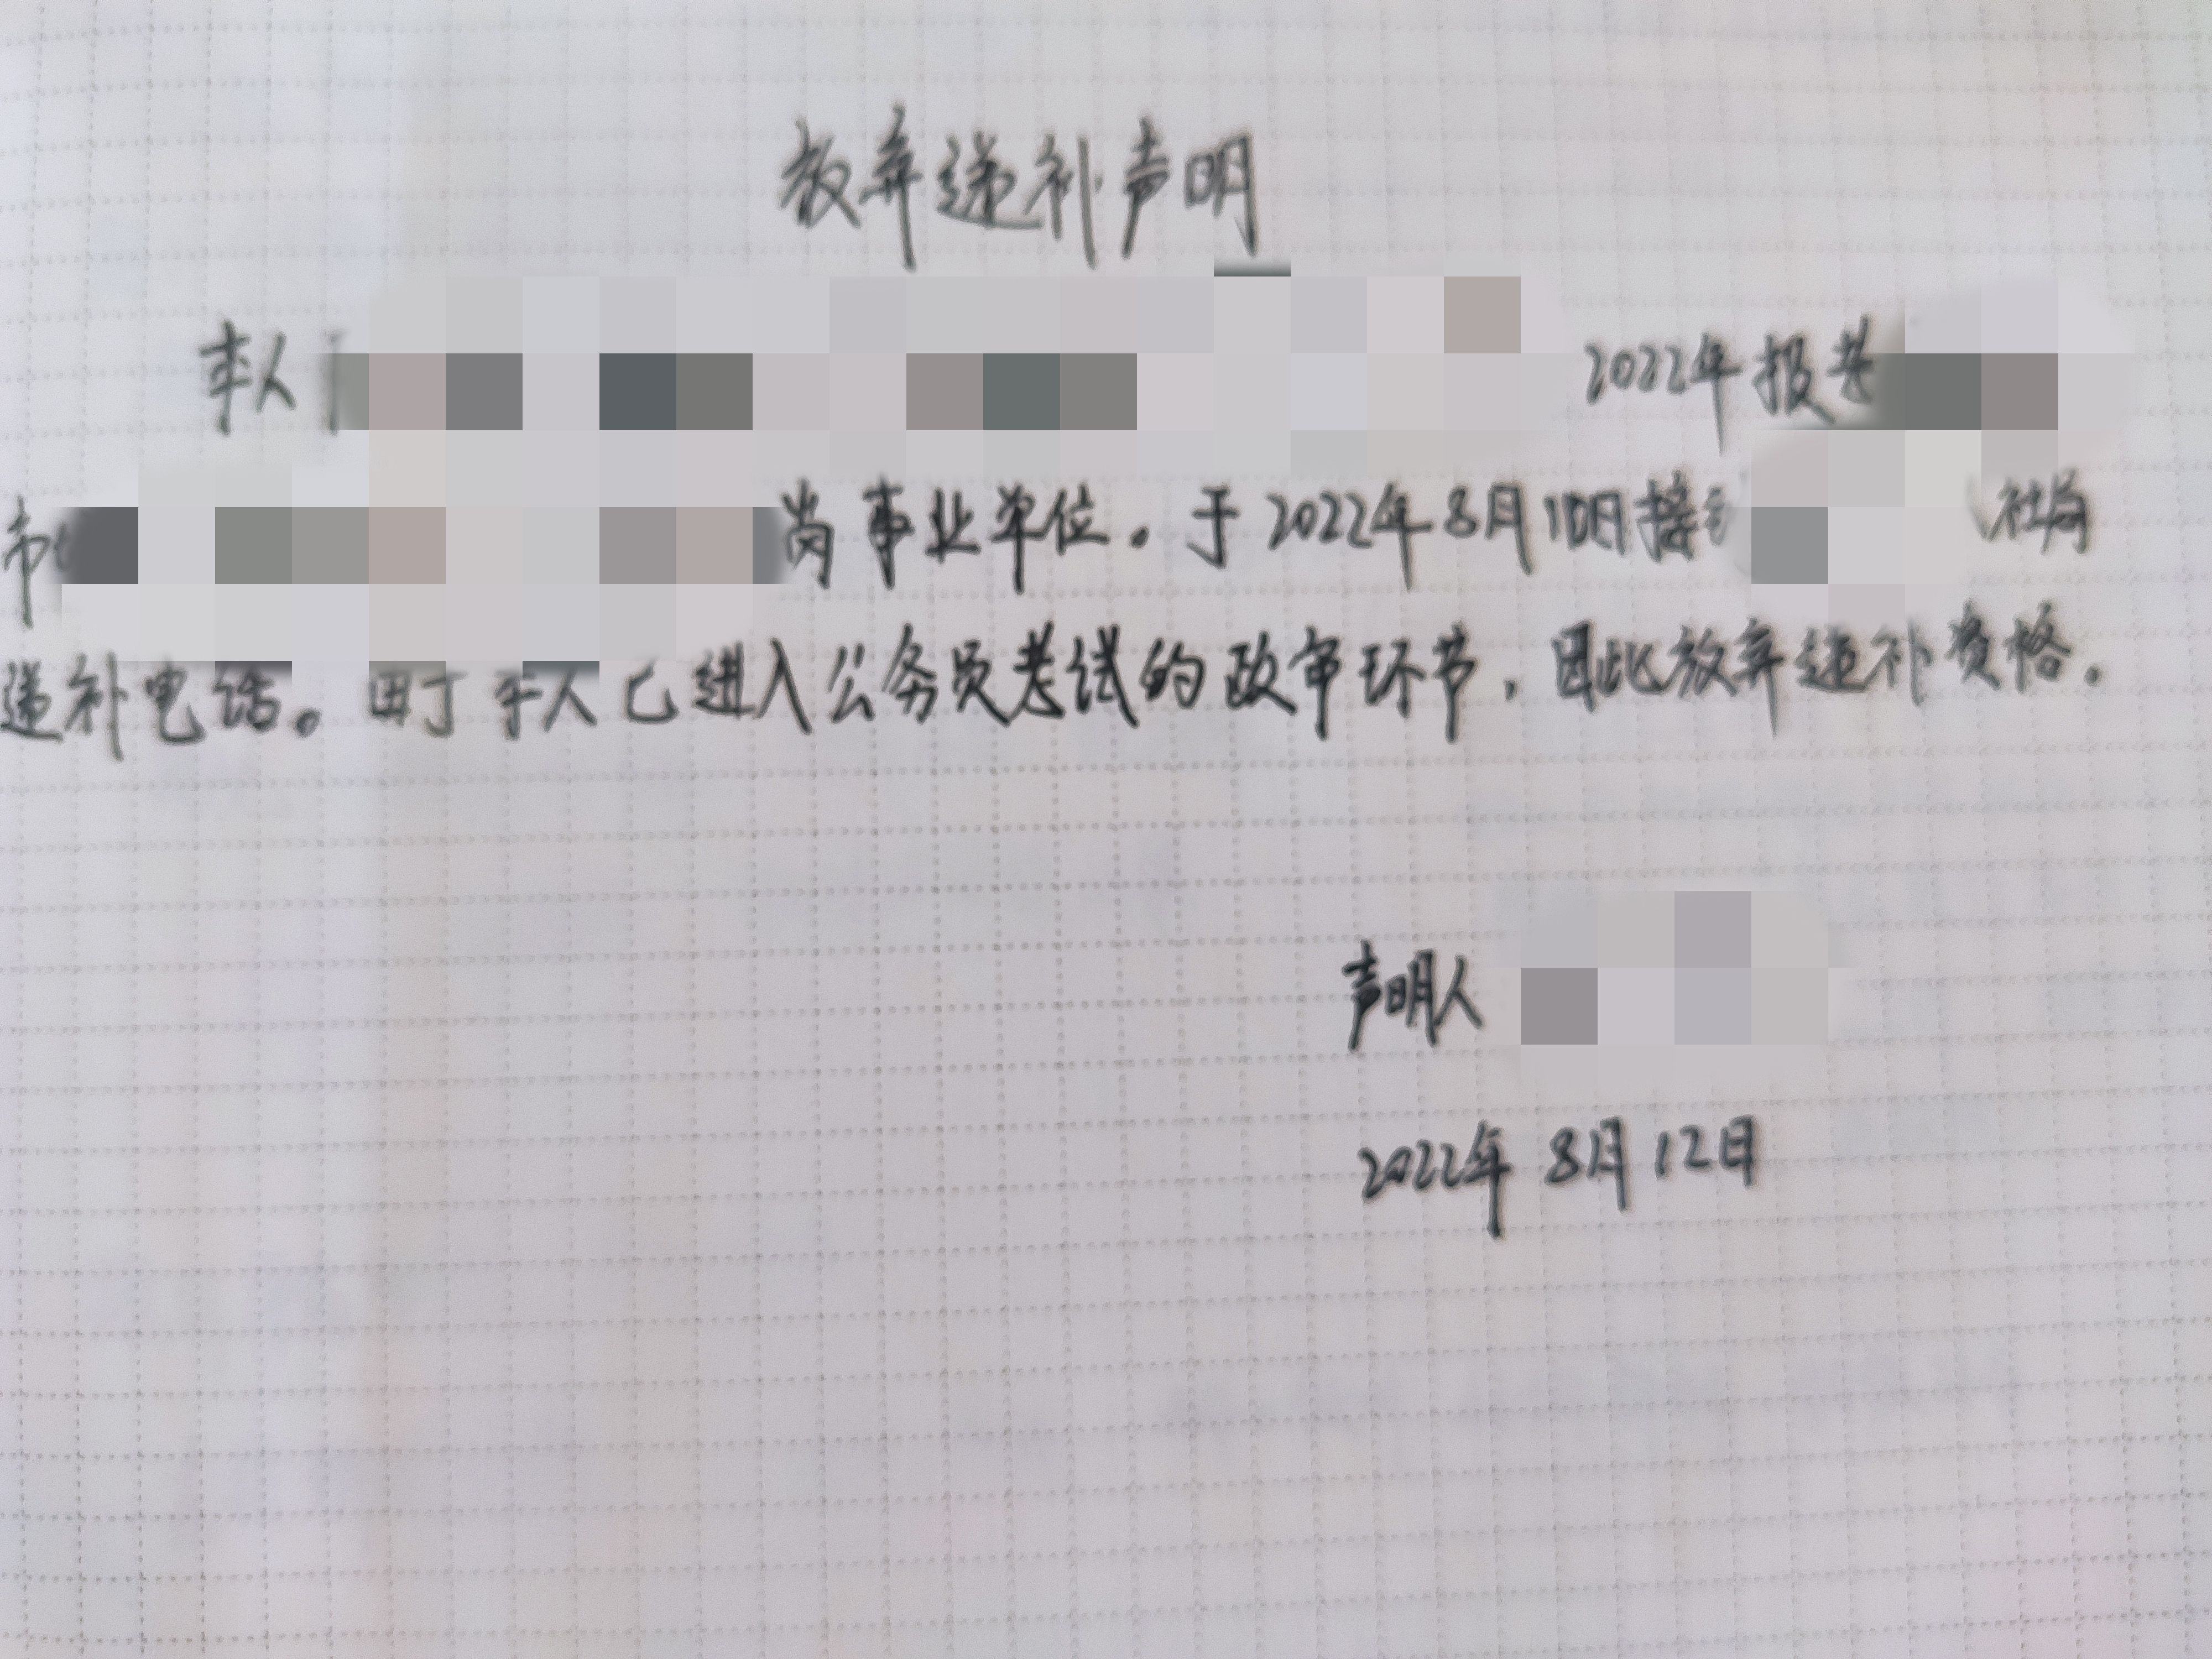 放弃递补声明
本人 2022年报考
市 岗事业单位。于2022年8月10日接 社局
递补电话。由于本人已进入公务员考试的政审环节，因此放弃递补资格。
声明人
2022年8月12日